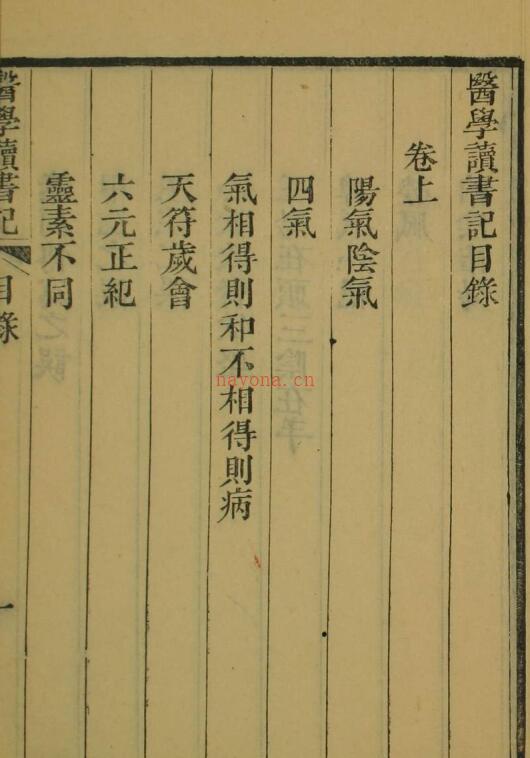 醫學讀書記目錄
卷上
陽氣陰氣
四氣
氣相得則和不相得則病
天符歲會
六元正紀
靈素不同
醫學讀書記 目錄 一
nayona.cn